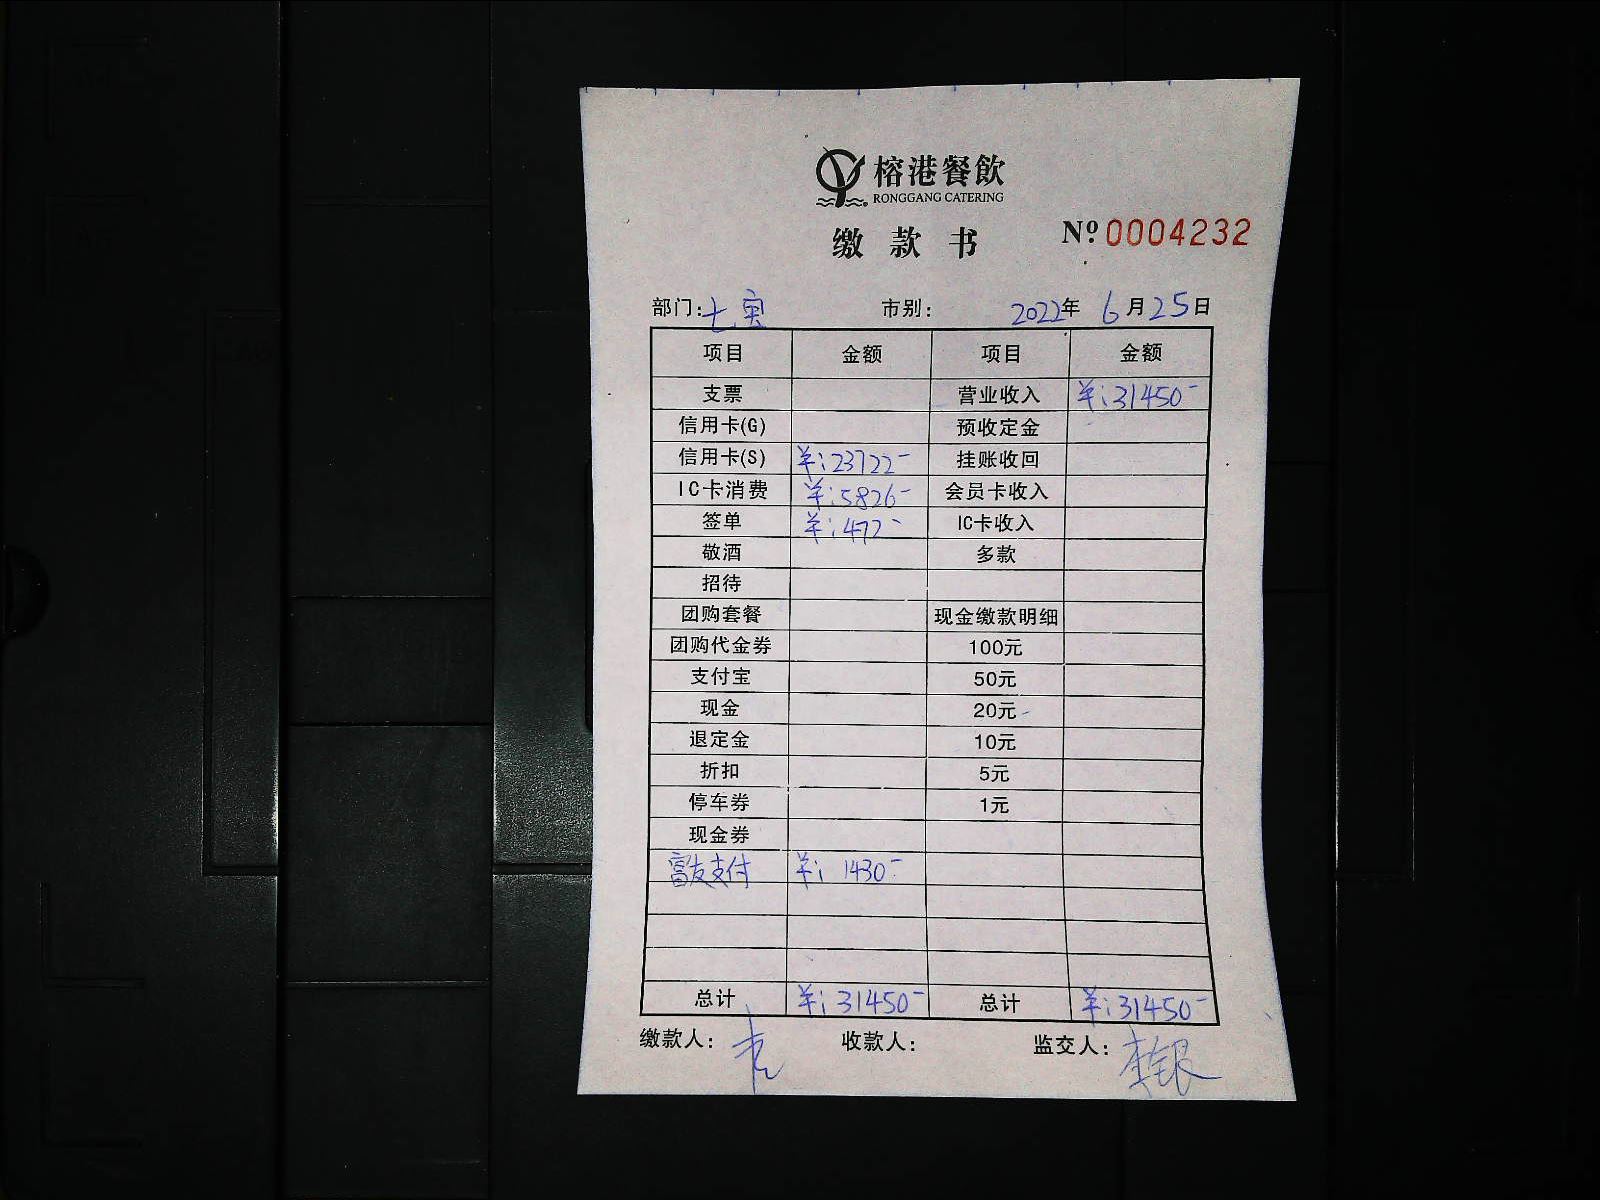 榕港餐飲
RONGGANG CATERING
缴款书 Nº 0004232
部门: 七实 市别: 2022年 6月25日
项目 金额 项目 金额
支票 营业收入 ¥:31450-
信用卡(G) 预收定金
信用卡(S) ¥:23722- 挂账收回
IC卡消费 ¥:5826- 会员卡收入
签单 ¥:472- IC卡收入
敬酒 多款
招待
团购套餐 现金缴款明细
团购代金券 100元
支付宝 50元
现金 20元
退定金 10元
折扣 5元
停车券 1元
现金券
富友支付 ¥: 1430-
总计 ¥:31450- 总计 ¥:31450-
缴款人: 收款人: 监交人: